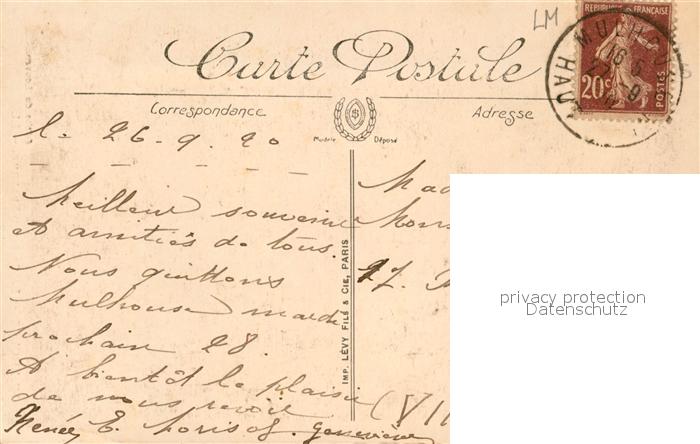 LM
REPUBLIQUE FRANÇAISE
20c
POSTES
MULHOU
16
HAU
Carte Postale
Correspondance
Adresse
Modèle Déposé
le 26.9.20
Meilleur souvenir
et amitiés de tous.
Nous quittons
Mulhouse mardi
prochain 28.
A bientôt le plaisir
de vous revoir
Renée E. Geneviève
IMP. LÉVY FILS & CIE, PARIS
Mad
Mons
27.
(VII
privacy protection
Datenschutz